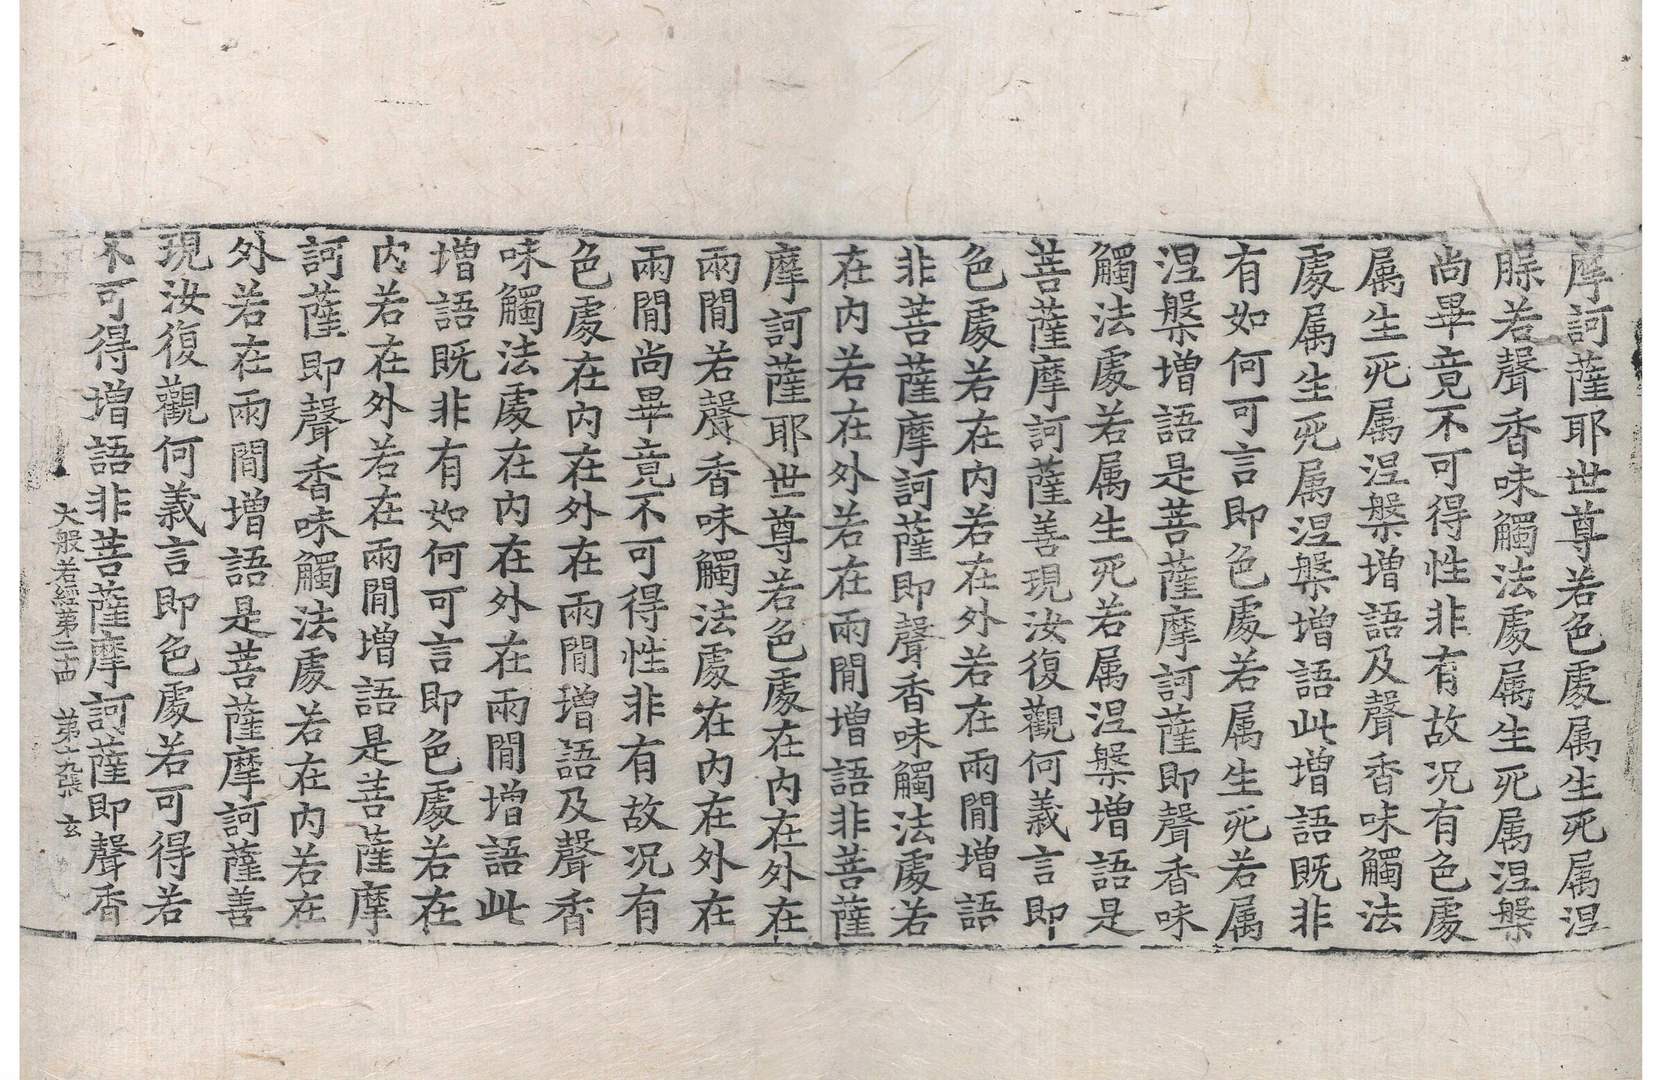 摩訶薩耶世尊若色處属生死属涅
槃若聲香味觸法處属生死属涅槃
尚畢竟不可得性非有故况有色處
属生死属涅槃增語及聲香味觸法
處属生死属涅槃增語此增語既非
有如何可言即色處若属生死若属
涅槃增語是菩薩摩訶薩即聲香味
觸法處若属生死若属涅槃增語是
菩薩摩訶薩善現汝復觀何義言即
色處若在内若在外若在兩閒增語
非菩薩摩訶薩即聲香味觸法處若
在内若在外若在兩閒增語非菩薩
摩訶薩耶世尊若色處在内在外在
兩閒若聲香味觸法處在内在外在
兩閒尚畢竟不可得性非有故况有
色處在内在外在兩閒增語及聲香
味觸法處在内在外在兩閒增語此
增語既非有如何可言即色處若在
内若在外若在兩閒增語是菩薩摩
訶薩即聲香味觸法處若在内若在
外若在兩閒增語是菩薩摩訶薩善
現汝復觀何義言即色處若可得若
不可得增語非菩薩摩訶薩即聲香
大般若經第二十四 第十九張 玄